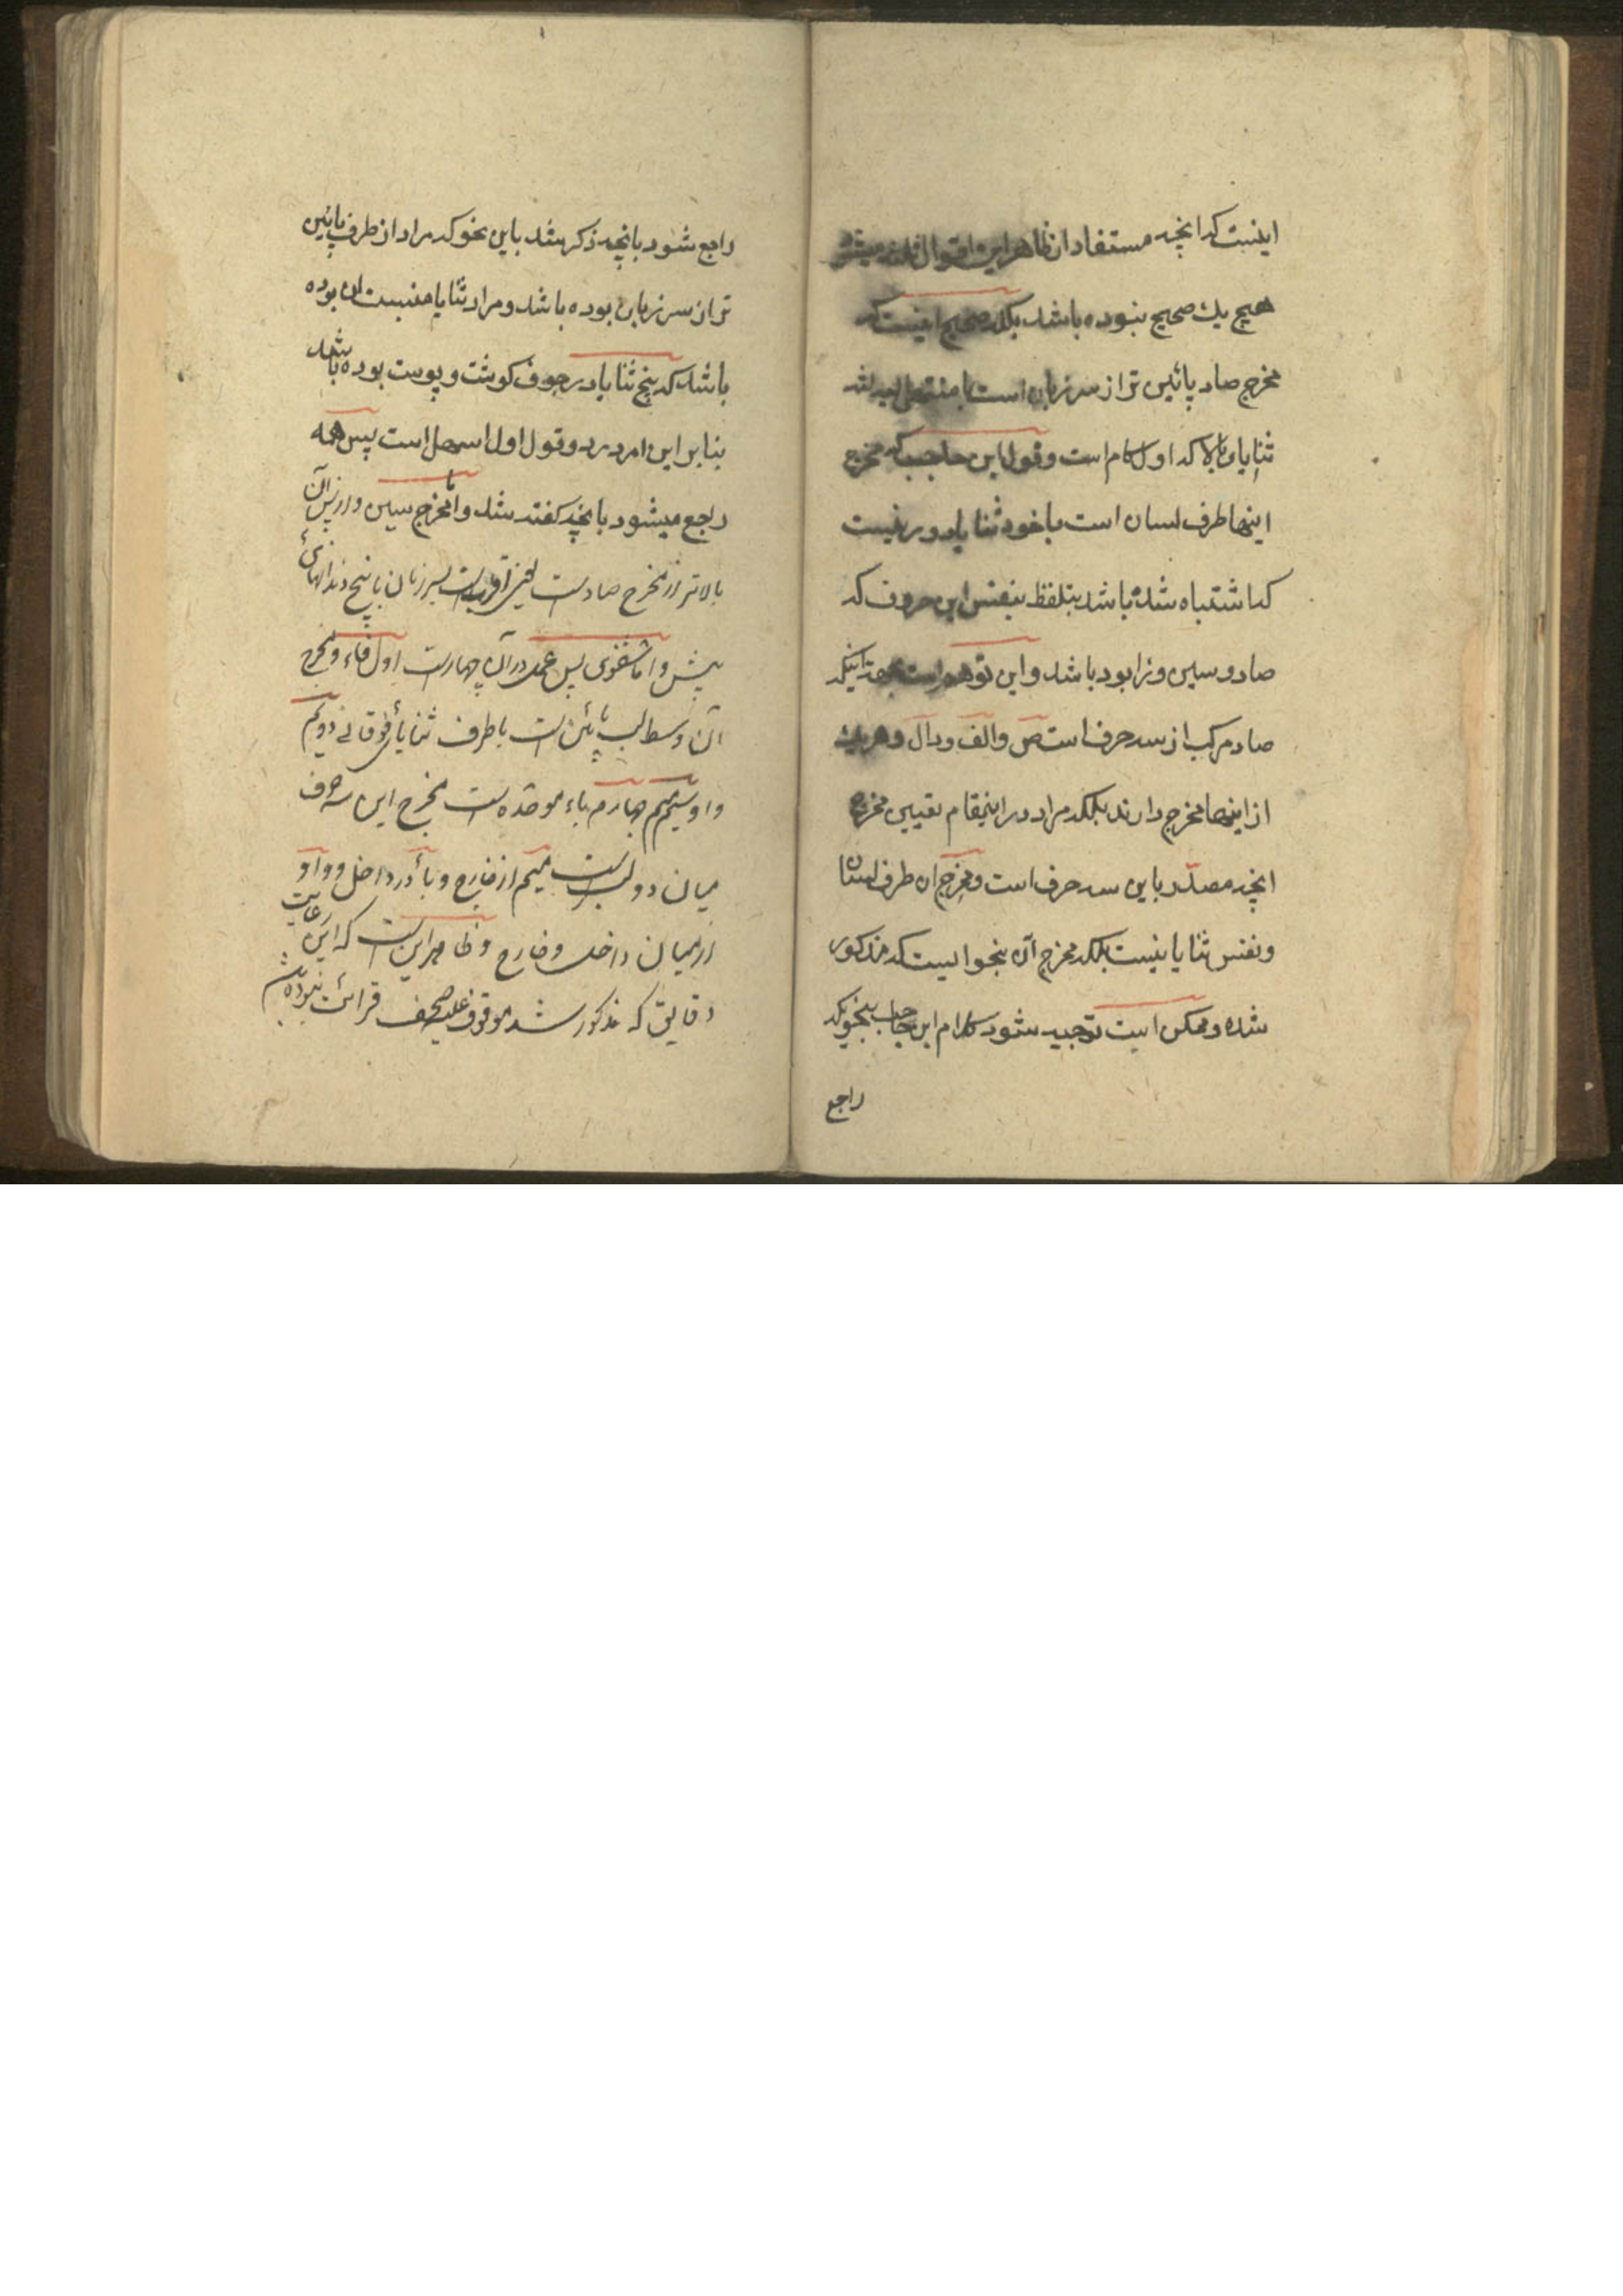 اینست که انچه مستفاد از ظاهر این اقوال ثلثه میشود
هیچ یک صحیح نبوده باشد بلکه صحیح اینست که
مخرج صاد پائین تر از سر زبان است با منتهی لثه
ثنایای بالا که اول کام است و قول ابن حاجب که مخرج
اینها طرف لسان است با خود ثنایا دور نیست
که اشتباه شده باشد بتلفظ بنفس این حروف که
صاد و سین و زا بود باشد و این توهم است بجهة اینکه
صاد مرکب از سه حرف است ص والف و دال و هر یک
از اینها مخرج دارند بلکه مراد در اینمقام تعیین مخرج
انچه مصدّر باین سه حرف است و مخرج ان طرف لسان
و نفس ثنایا نیست بلکه مخرج آن بنحوایست که مذکور
شده و ممکن است توجیه شود کلام ابن حاجب بنحویکه
راجع
راجع شود بانچه ذکر شد باین نحو که مراد از طرف پائین
تر از سر زبان بوده باشد و مراد ثنایا منبت ان بوده
باشد که بیخ ثنایا در جوف کوشت و پوست بوده باشد
بنابر این امر در دو قول اول اسهل است پس همه
راجع میشود بانچه کفته شد و امّا مخرج سین و زا پس آن
بالاتر از مخرج صاد است یعنی اقرب است بسر زبان با بیخ دندانهای
پیش و امّا شفوی پس عمده در آن چهار است اوّل فاء و مخرج
آن وسط لب پائین است با طرف ثنایای فوقانی دویم
واو سیم میم چهارم باء موحّده است مخرج این سه حرف
میان دو لب است میم از خارج و باء در داخل و واو
از میان داخل و خارج و ظاهر این است که این رعایت
دقایق که مذکور شد موقوف علیه صحت قرائت نبوده باشد